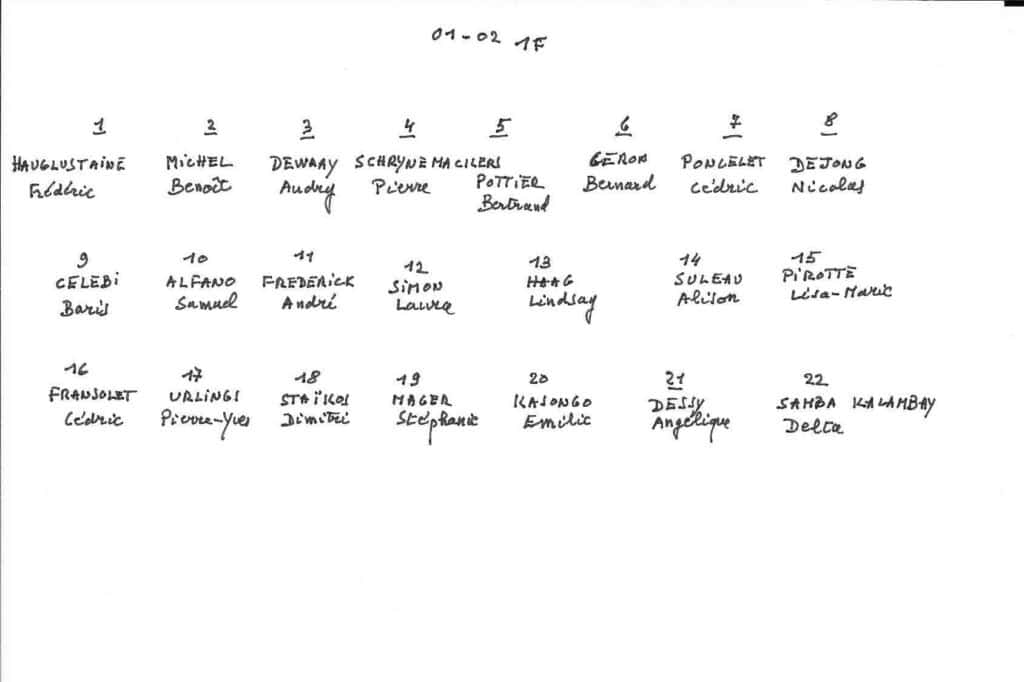 01-02 1F
1 2 3 4 5 6 7 8
HAUGLUSTAINE MICHEL DEWAAY SCHRYNEMACKERS POTTIER GERON PONCELET DEJONG
Frédéric Benoît Audry Pierre Bertrand Bernard Cédric Nicolas
9 10 11 12 13 14 15
CELEBI ALFANO FREDERICK SIMON HAAG SULEAU PIROTTE
Baris Samuel André Laura Lindsay Alison Lisa-Marie
16 17 18 19 20 21 22
FRANSOLET URLINGS STAÏKOS MAGER KASONGO DESSY SAMBA KALAMBAY
Cédric Pierre-Yves Dimitri Stéphanie Emilie Angélique Delta